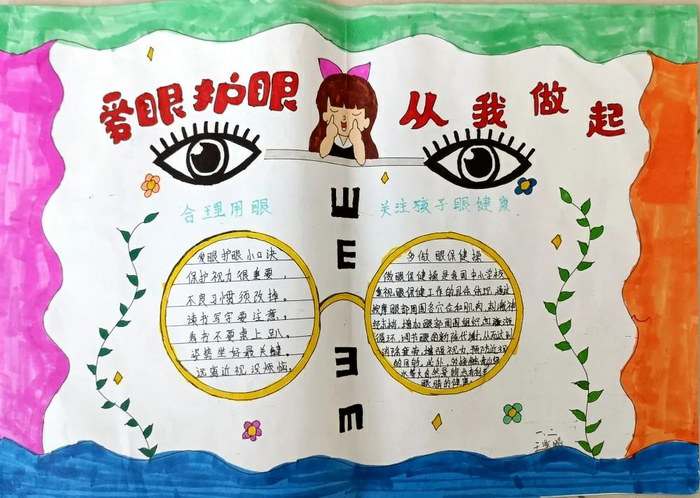 爱眼护眼 从我做起
合理用眼
关注孩子眼健康
Ш
E
Ш
Ǝ
m
E
爱眼护眼小口诀
保护视力很重要，
不良习惯须改掉。
读书写字要注意，
看书不要桌上趴。
姿势坐好最关键，
远离近视没烦恼。
多做眼保健操
做眼保健操是我国中小学校
重视眼保健工作的具体体现，通过
按摩眼部周围各穴位和肌肉，刺激神
经末梢，增加眼部周围组织血液
循环，调节眼的新陈代谢，从而达到
消除疲劳，增强视力，预防近视
的目的。此外，
大自然
眼睛的健康。
一.二